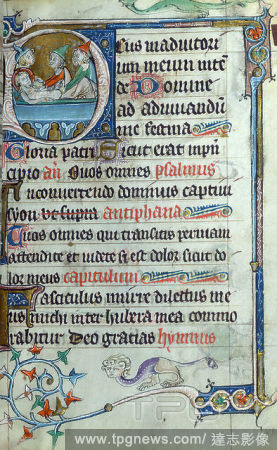 Deus in adiutori
um meum inte
de Domine
ad adiuvandum
me festina
Gloria patri Sicut erat in prin
cipio añ Vos omnes psalmus
In convertendo dominus captiui
syon de supra antiphana
O vos omnes qui transitis per uiam
attendite et uidete si est dolor sicut do
lor meus capitulum
Fasciculus mirre dilectus me
us michi inter hubera mea commo
rabitur Deo gracias hymnus
TPG
www.tpgnews.com/ 達志影像